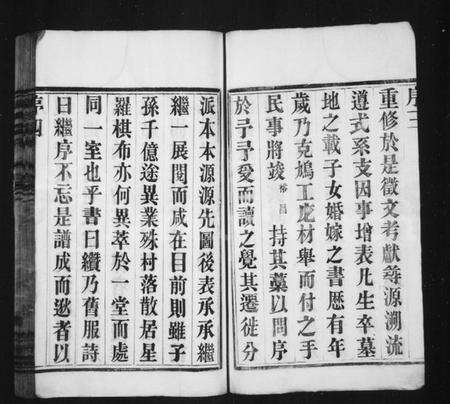 序三
重修於是徵文考獻尋源溯流
遵式系支因事增表凡生卒墓
地之載子女婚嫁之書歷有年
歲乃克鳩工庀材舉而付之手
民事將竣裕昌持其藁以問序
於予予受而讀之覺其遷徙分
派本本源源先圖後表承承繼
繼一展閱而咸在目前則雖子
孫千億途異業殊村落散居星
羅棋布亦何異萃於一堂而處
同一室也乎書曰纘乃舊服詩
曰繼序不忘是譜成而逖者以
序四